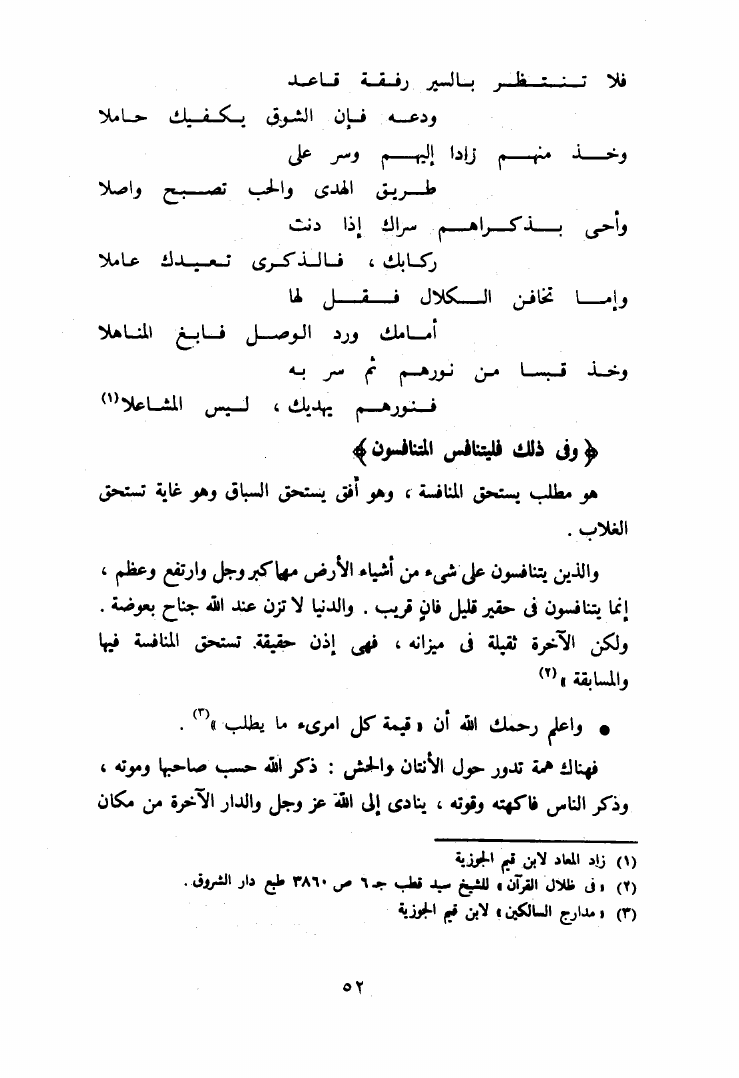 فلا تنتظر بالسير رفقة قاعد
ودعه فإن الشوق يكفيك حاملا
وخذ منهم زادا إليهم وسر على
طريق الهدى والحب تصبح واصلا
وأحى بذكراهم سراك إذا دنت
ركابك ، فالذكرى تعيدك عاملا
وإما تخافن الكلال فقل لها
أمامك ورد الوصل فابغ المناهلا
وخذ قبسا من نورهم ثم سر به
فنورهم يهديك ، ليس المشاعلا(١)
﴿ وفى ذلك فليتنافس المتنافسون ﴾
هو مطلب يستحق المنافسة ، وهو أفق يستحق السباق وهو غاية تستحق
الغلاب .
والذين يتنافسون على شىء من أشياء الأرض مهما كبر وجل وارتفع وعظم ،
إنما يتنافسون فى حقير قليل فانٍ قريب . والدنيا لا تزن عند الله جناح بعوضة .
ولكن الآخرة ثقيلة فى ميزانه ، فهى إذن حقيقة تستحق المنافسة فيها
والمسابقة »(٢)
● واعلم رحمك الله أن « قيمة كل امرىء ما يطلب »(٣) .
فهناك همة تدور حول الأنتان والحش : ذكر الله حسب صاحبها وموته ،
وذكر الناس فاكهته وقوته ، ينادى إلى الله عز وجل والدار الآخرة من مكان
(١) زاد المعاد لابن قيم الجوزية
(٢) « فى ظلال القرآن » للشيخ سيد قطب جـ ٦ ص ٣٨٦٠ طبع دار الشروق .
(٣) « مدارج السالكين » لابن قيم الجوزية
٥٢